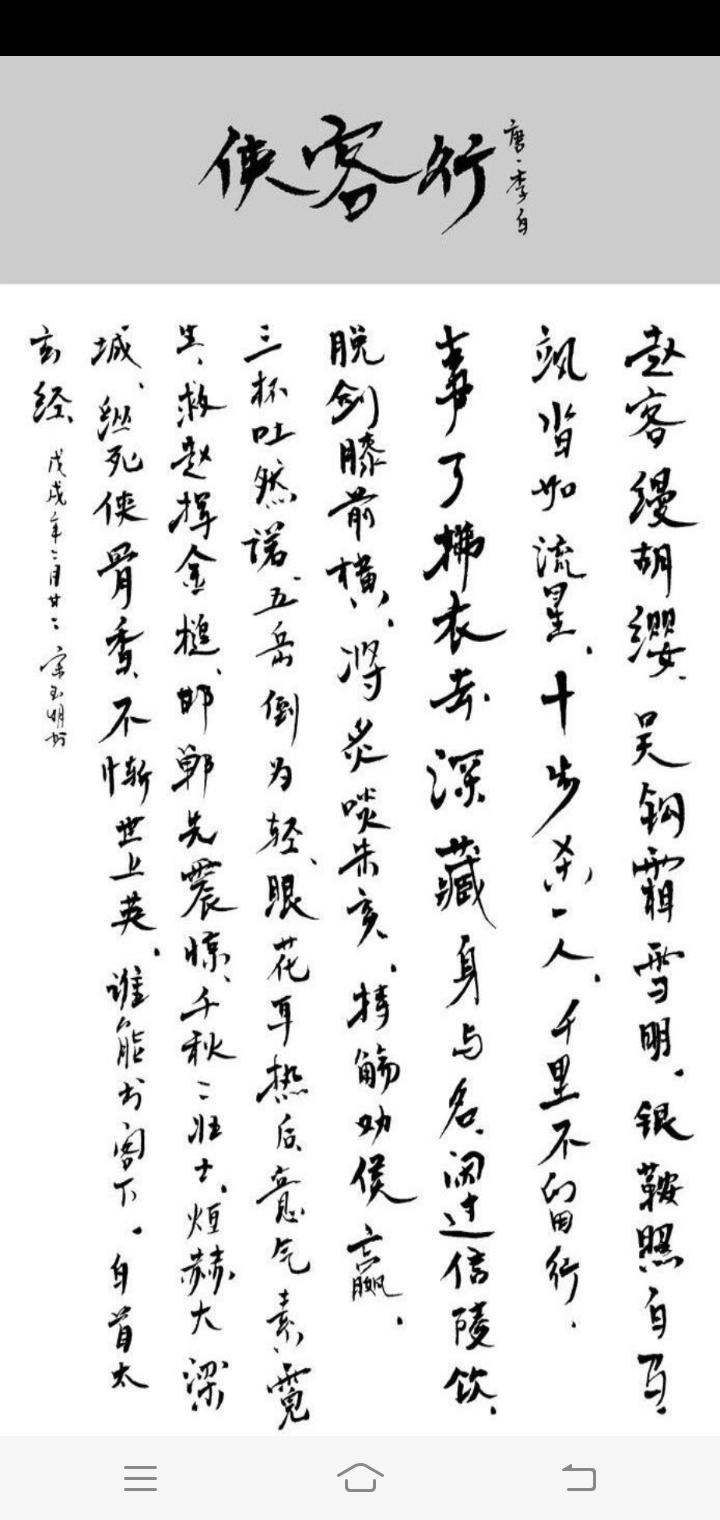 侠客行
唐·李白
赵客缦胡缨、吴钩霜雪明。银鞍照白马、
飒沓如流星、十步杀一人、千里不留行、
事了拂衣去深藏身与名、闲过信陵饮、
脱剑膝前横、将炙啖朱亥、持觞劝侯嬴、
三杯吐然诺、五岳倒为轻、眼花耳热后意气素霓
生、救赵挥金槌、邯郸先震惊、千秋二壮士、烜赫大梁
城、纵死侠骨香、不惭世上英、谁能书阁下、白首太
玄经、
戊戌年二月廿二 宗玉明书